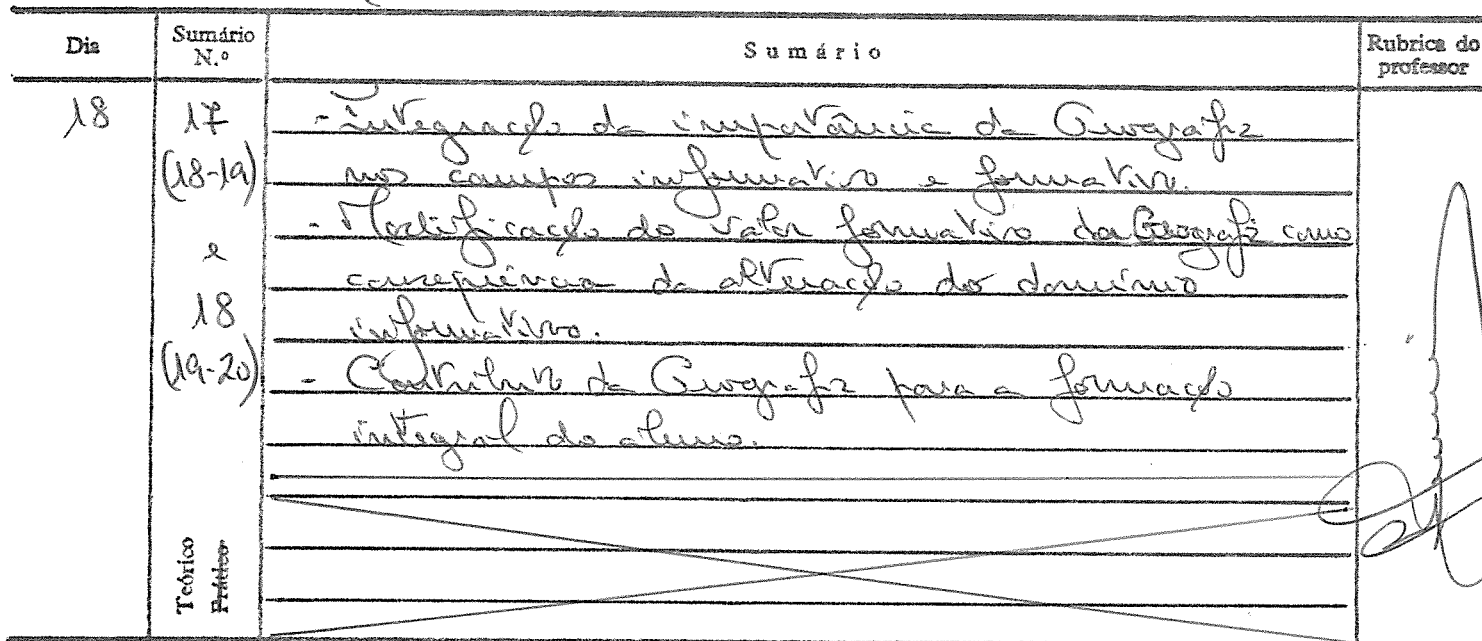 Dia Sumário N.º Sumário Rubrica do professor
18 17 - Integração da importância da Geografia
(18-19) nos campos informativo e formativo.
- Modificação do valor formativo da Geografia como
e consequência da alteração do domínio
18 informativo.
(19-20) - Contributo da Geografia para a formação
integral do aluno.
Teórico
Prático